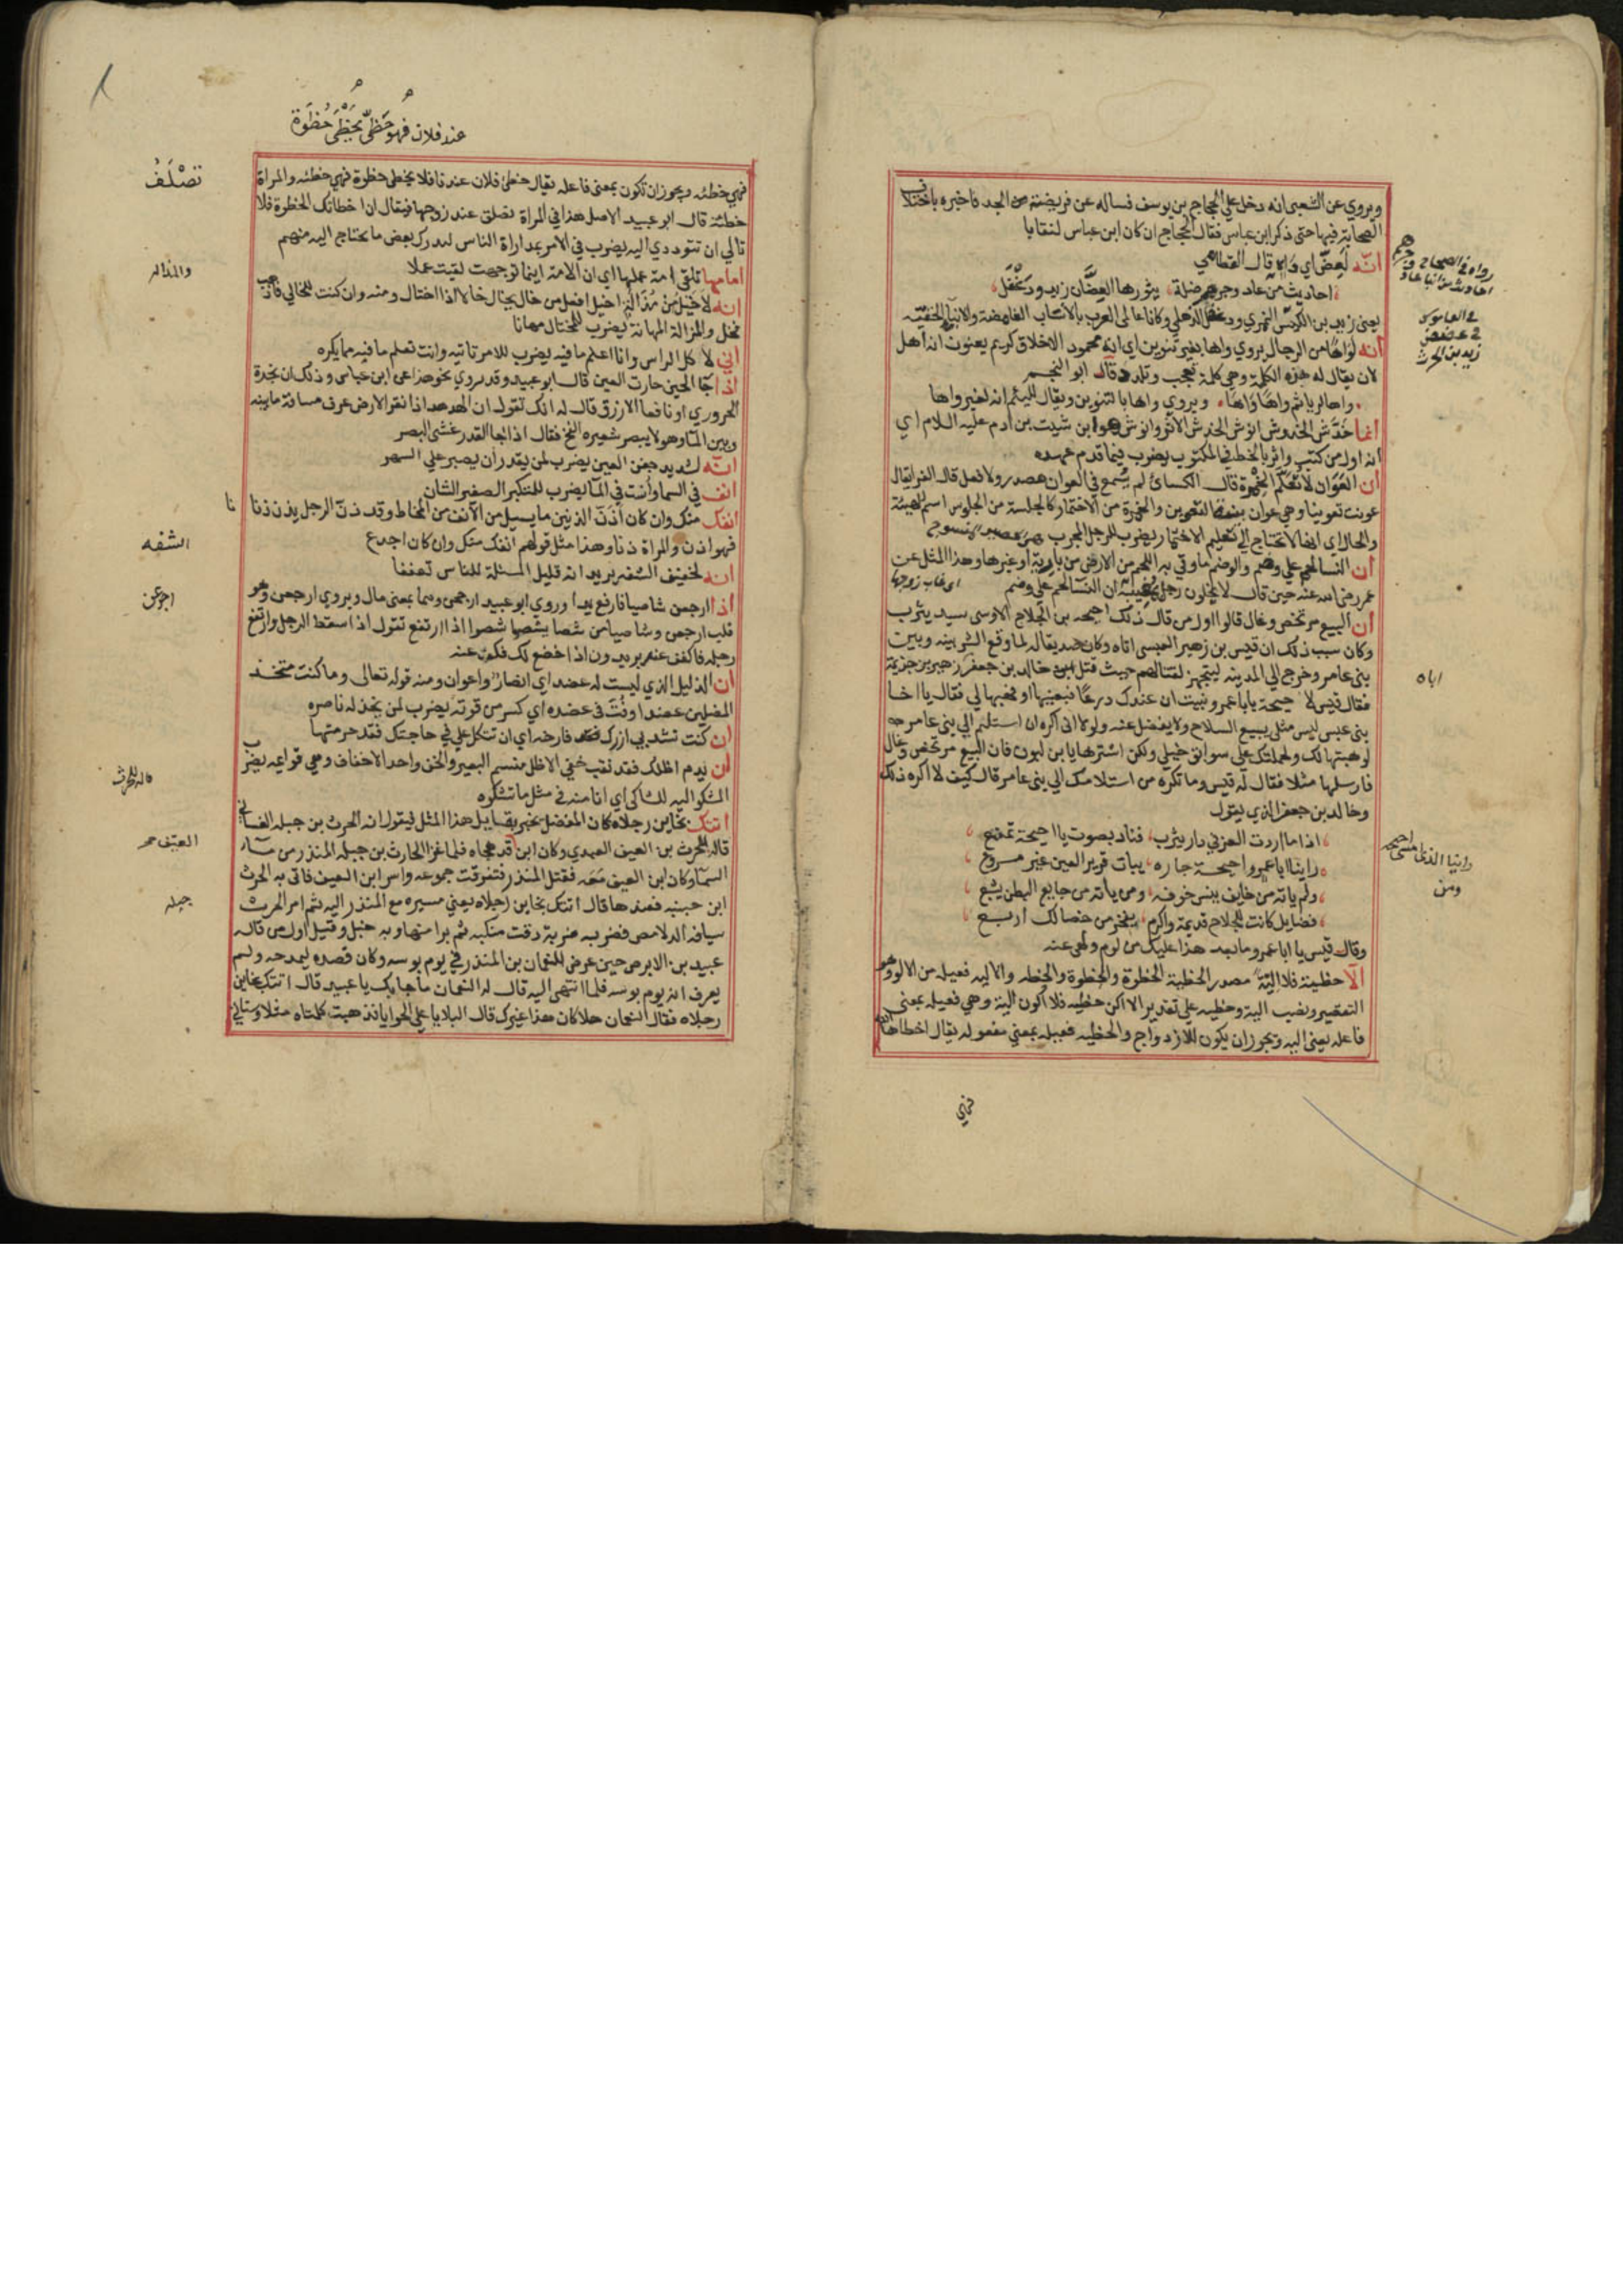 ويروي عن الشعبي انه دخل علي الحجاج بن يوسف فساله عن فريضة من الجد فاخبره باختلاف
الصحابة فيها حتى ذكر ابن عباس فقال الحجاج ان كان ابن عباس لنقابا
انه لعض اي داه قال القطامي
احاديث من عاد وجرهم ضلة يثورها العضان زيد ودغفل
يعني زيد بن الكيس النمري ودغفل الذهلي وكانا عالمي العرب بالانساب الغامضة والانبا الخفية
انه لواها من الرجال يروي واها بغير تنوين اي انه محمود الاخلاق كريم يعنون انه اهل
لان يقال له هذه الكلمة وهي كلمة تعجب وتلذذ قال ابو النجم
واها لريا ثم واها واها ويروي واها بالتنوين ويقال للئيم انه لغير واها
انما خدش الخدوش انوش الخدش الاثر وانوش هو ابن شيث بن ادم عليه السلام اي
انه اول من كتب واثر بالخط في المكتوب يضرب فيما قدم عهده
ان العوان لا تعلم الخمرة قال الكسائي لم يسمع في العوان مصدر ولا فعل قال الفرا يقال
عونت تعوينا وهي عوان بينة التعوين والخمرة من الاختمار كالجلسة من الجلوس اسم للهيئة
والحال اي انها لا تحتاج الي تعليم الاختمار يضرب للرجل المجرب
ان النسا لحم علي وضم والوضم ما وقي به اللحم من الارض من بارية او غيرها وهذا المثل عن
عمر رضي الله عنه حين قال لا يخلون رجل بمغيبة ان النسا لحم علي وضم
اي غاب زوجها
ان البيع مرتخص وغال قالوا اول من قال ذلك احيحه بن الجلاح الاوسي سيد يثرب
وكان سبب ذلك ان قيس بن زهير العبسي اتاه وكان صديقا له لما وقع الشر بينه وبين
بني عامر وخرج الي المدينه ليتجهز لقتالهم حيث قتل خالد بن جعفر زهير بن جزيمة
فقال قيس لا حيحة يابا عمرو نبيت ان عندك درعا فبعنيها او هبها لي فقال يا اخا
بني عبس ليس مثلي يبيع السلاح ولا يفضل عنه ولولا اني اكره ان استليم الي بني عامر
لوهبتها لك ولحملتك علي سوابق خيلي ولكن اشترها يا بن لبون فان البيع مرتخص وغال
فارسلها مثلا فقال له قيس وما تكره من استلامك الي بني عامر قال كيف لا اكره ذلك
وخالد بن جعفر الذي يقول
اذا ما اردت العز في دار يثرب فناد بصوت يا احيحة تمنع
راينا ابا عمرو احيحة جاره يبات قرير العين غير مروع
ولم ياته من خايف ينس خوفه ومن ياته من جايع البطن يشبع
فضايل كانت للجلاح قديمة واكرم بفخر من خصالك اربع
وقال قيس يا ابا عمرو ما بعد هذا عليك من لوم ولهى عنه
الا حظية فلا الية مصدر الحظية الحظوة والحظوة والحظه والاليه فعيله من الالو وهو
التقصير ونصب الية وحظيه علي تقدير الا اكن حظيه فلا اكون الية وهي فعيله بمعني
فاعله يعني اليه ويجوز ان يكون للازدواج والحظيه فعيله بمعني مفعوله يقال احظاها الله
فهي
رواه في الصحاح
في القاموس
زيد بن الحرث
اباه
ومن
عند فلان فهو حظي يحظى حظوة
فهي حظيه ويجوز ان تكون بمعني فاعله يقال حظي فلان عند فلان يحظي حظوة فهي حظيه والمراة
حظية قال ابو عبيد الاصل هذا في المراة تصلف عند زوجها فيقال ان اخطاتك الحظوة فلا
تالي ان تتوددي اليه يضرب في الامر بمداراة الناس ليدرك بعض ما يحتاج اليه منهم
امامها تلقى امة عملها اي ان الامة اينما توجهت لقيت عملا
انه لاخيل من مذالة اخيل افعل من خال يخال خالا اذا اختال ومنه وان كنت للخال فاذهب
فخل والمذالة المهانة يضرب للمختال مهانا
اني لا كل الراس وانا اعلم ما فيه يضرب للامر تاتيه وانت تعلم ما فيه مما يكره
اذا جا الحين حارت العين قال ابو عبيد وقد يروي نحو هذا عن ابن عباس وذلك ان نجدة
الحروري او نافعا الازرق قال له انك تقول ان الهدهد اذا نقر الارض عرف مسافة ما بينه
وبين الما وهو لا يبصر شعيره الفخ فقال اذا جا القدر غشي البصر
انه لشديد جفن العين يضرب لمن يقدر ان يصبر علي السهر
انف في السما واست في الما يضرب للمتكبر الصغير الشان
انفك منك وان كان اذن الذنين ما يسيل من الانف من المخاط وقد ذن الرجل يذن ذنا
فهو اذن والمراة ذنا وهذا مثل قولهم انفك منك وان كان اجدع
انه لخفيف الشفه يريد انه قليل المسئلة للناس تعففا
اذا ارجعن شاصيا فارفع يدا وروي ابو عبيد ارجعن وهما بمعني مال ويروي ارجعن وهو
قلب ارجعن وشاصيا من شصا يشصو شصوا اذا ارتفع تقول اذا سقط الرجل وارتفع
رجله فاكفف عنه يريدون اذا خضع لك فكف عنه
ان الذليل الذي ليست له عضد اي انصار واعوان ومنه قوله تعالى وما كنت متخذ
المضلين عضدا وفت في عضده اي كسر من قوته يضرب لمن يخذله ناصره
ان كنت تشد بي ازرك فقد فارخه اي ان تتكل علي في حاجتك فقد حرمتها
ان يدم اظلك فقد نقب خفي الاظل منسم البعير والخف واحد الاخفاف وهي قوايمه يضرب
المشكو اليه للشاكي اي انا منه في مثل ما تشكوه
اتتك بخاين رجلاه كان المفضل يخبر بقايل هذا المثل فيقول انه الحرث بن جبله الغساني
قاله للحرث بن العيف العبدي وكان ابن قد هجاه فلما غزا الحارث بن جبله المنذر من ما
السما وكان ابن العيف معه فقتل المنذر فتفرقت جموعه واسر ابن العيف فاتي به الحرث
ابن جبله فعندها قال اتتك بخاين رجلاه يعني مسيره مع المنذر اليه ثم امر الحرث
سيافه الدلامص فضربه ضربة دقت منكبه ثم برا منها وبه خبل وقيل اول من قاله
عبيد بن الابرص حين عرض للنعمان بن المنذر في يوم بوسه وكان قصده ليمدحه ولم
يعرف انه يوم بوسه فلما انتهي اليه قال له النعمان ما جا بك يا عبيد قال اتتك بخاين
رجلاه فقال النعمان هلا كان هذا غيرك قال البلايا علي الحوايا فذهبت كلمتاه مثلا
تصلف
والمذاله
الشفه
ارجعن
قاله للحرث
العيف
جبله